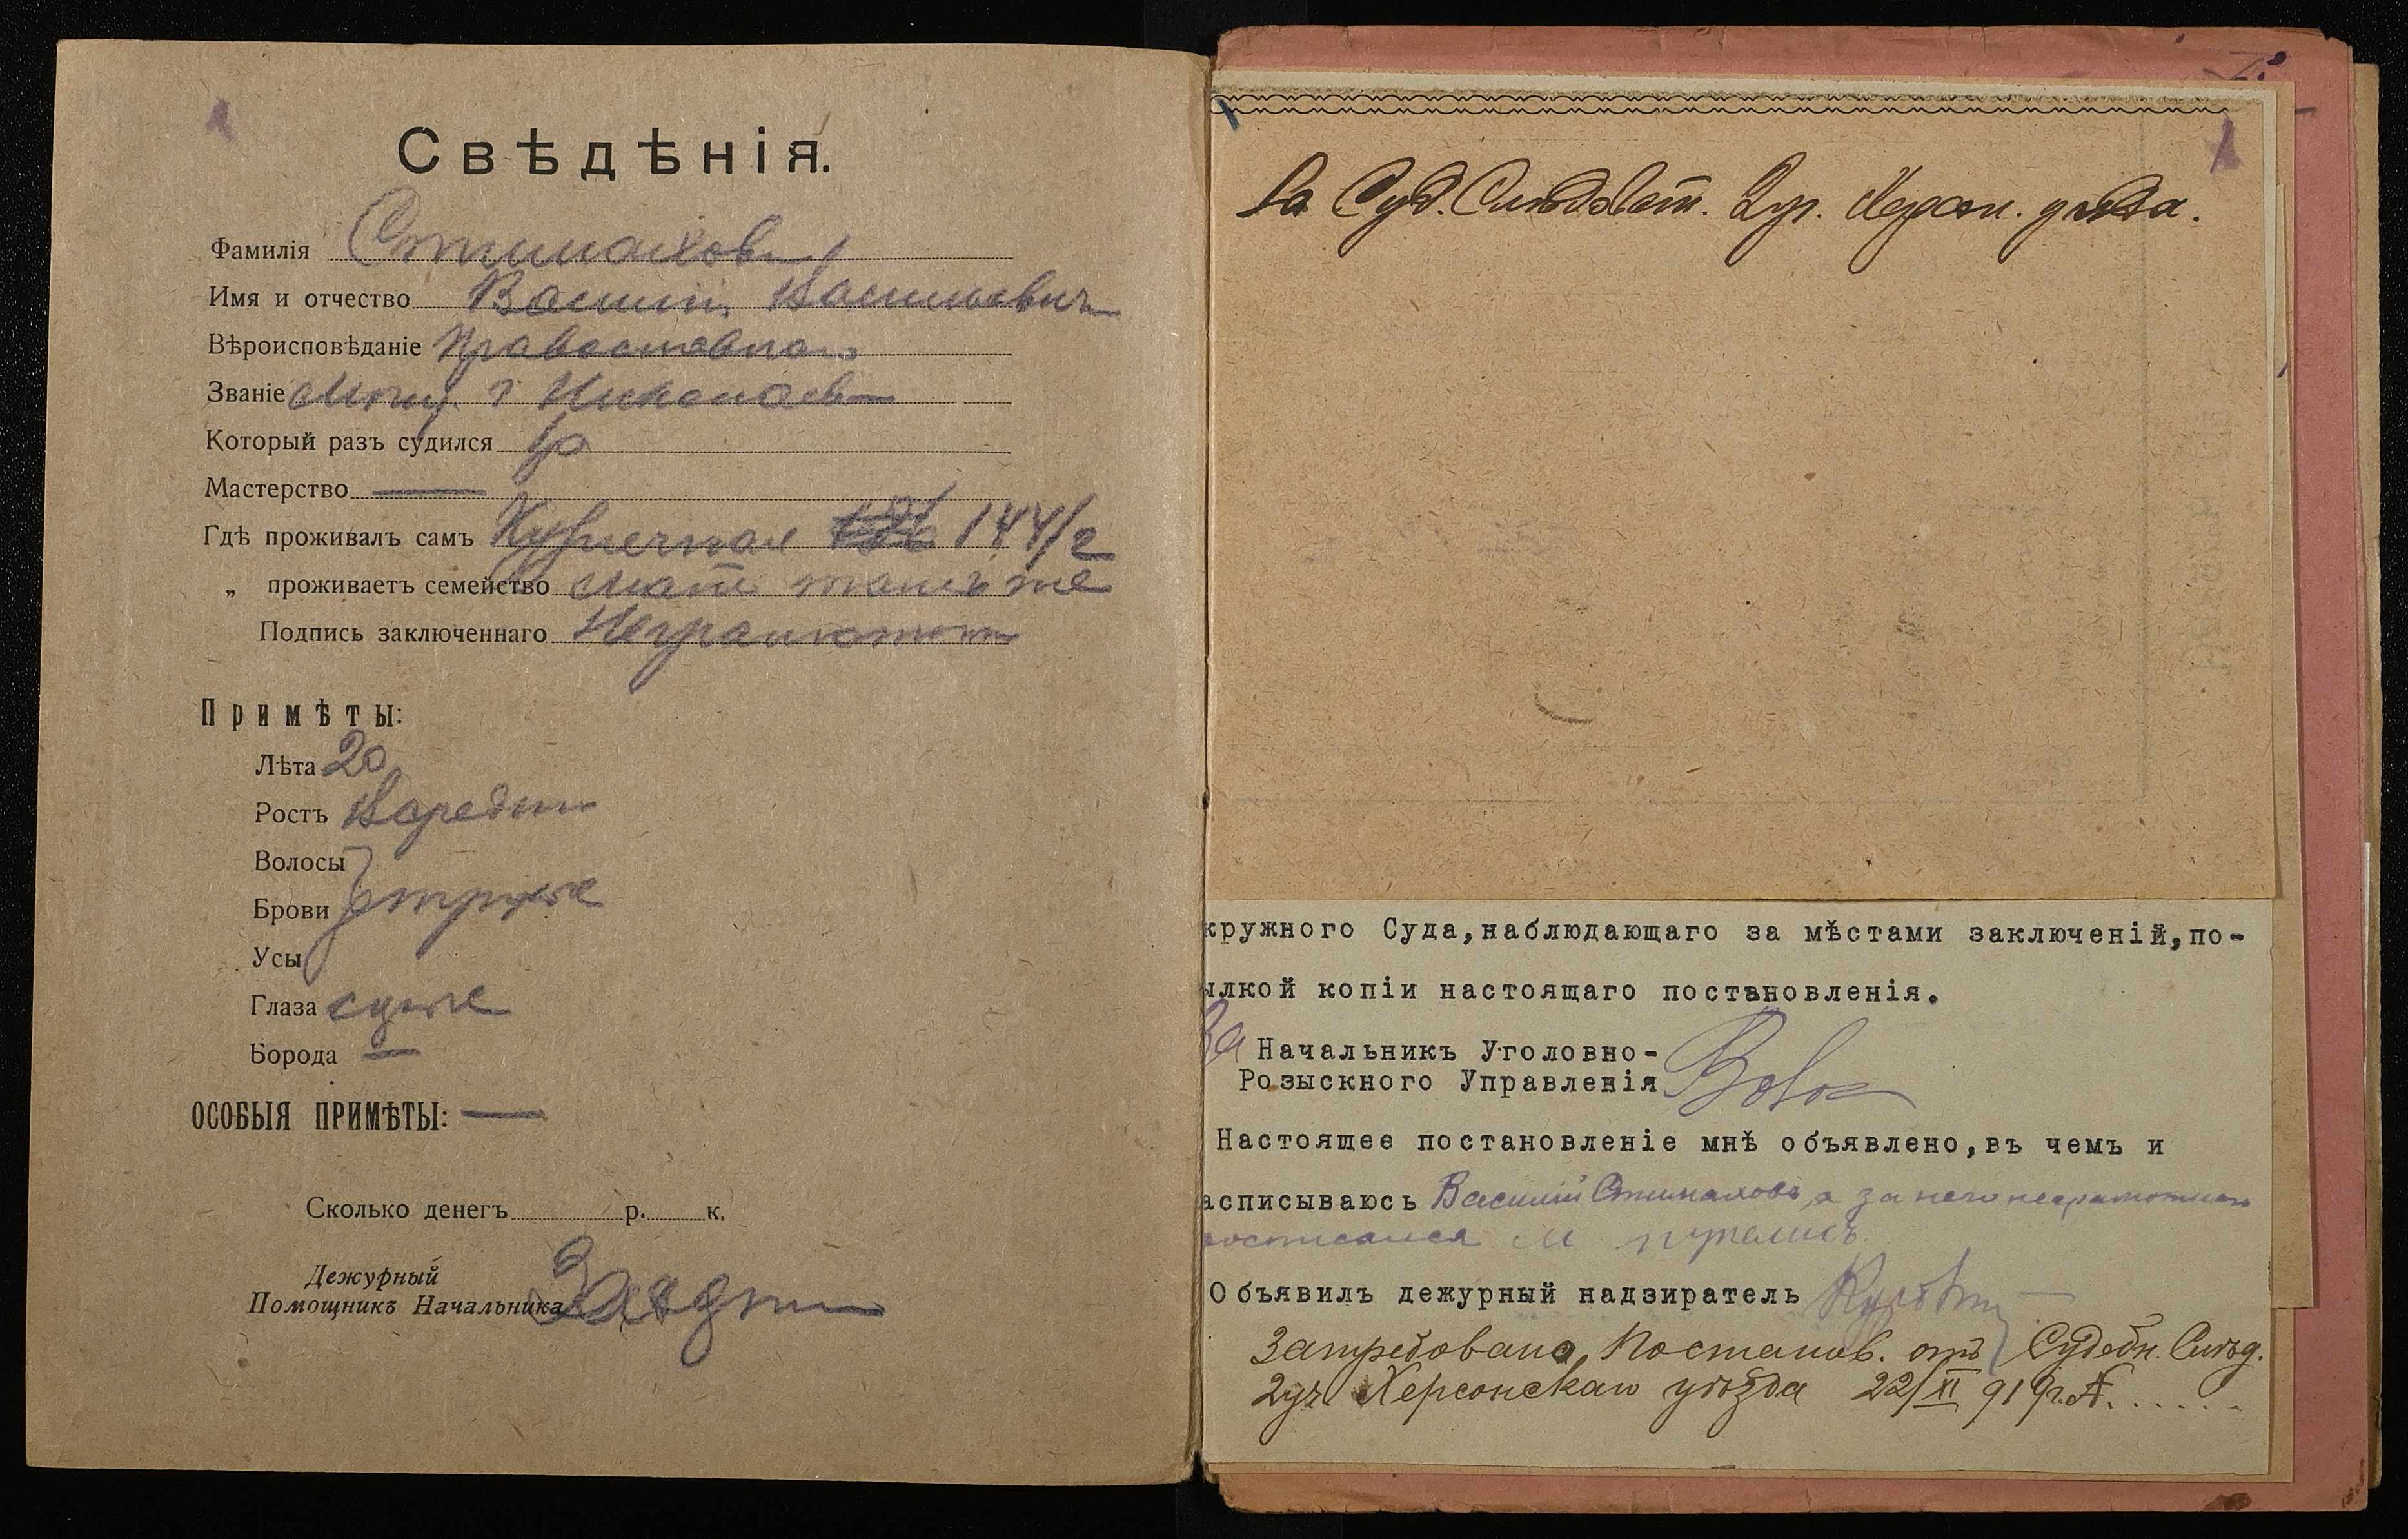 Свѣдѣнія.
Фамилія Стимаховъ
Имя и отчество Василій Васильевичъ
Вѣроисповѣданіе Православное
Званіе Мѣщ. г Николаев
Который разъ судился
Мастерство —
Гдѣ проживалъ самъ Кузнечная 144/2
„ проживаетъ семейство мать тамъ же
Подпись заключеннаго Неграмотный
Примѣты:
Лѣта 20
Ростъ Средній
Волосы
Брови
Усы
Глаза
Борода —
ОСОБЫЯ ПРИМѢТЫ: —
Сколько денегъ р. к.
Дежурный
Помощникъ Начальника
За Суд. Слѣдоват. 2 уч. Херсон. уѣзда.
1
кружного Суда,наблюдающаго за мѣстами заключеній,по-
ылкой копіи настоящаго постановленія.
За Начальникъ Уголовно-
Розыскного Управленія
Настоящее постановленіе мнѣ объявлено,въ чемъ и
асписываюсь Василій Стимаховъ, а за него неграмотнаго
росписался М
Объявилъ дежурный надзиратель
Затребовано Постанов. отъ Судебн. Слѣд.
2 уч. Херсонскаго уѣзда 22/XI 919 г. №......